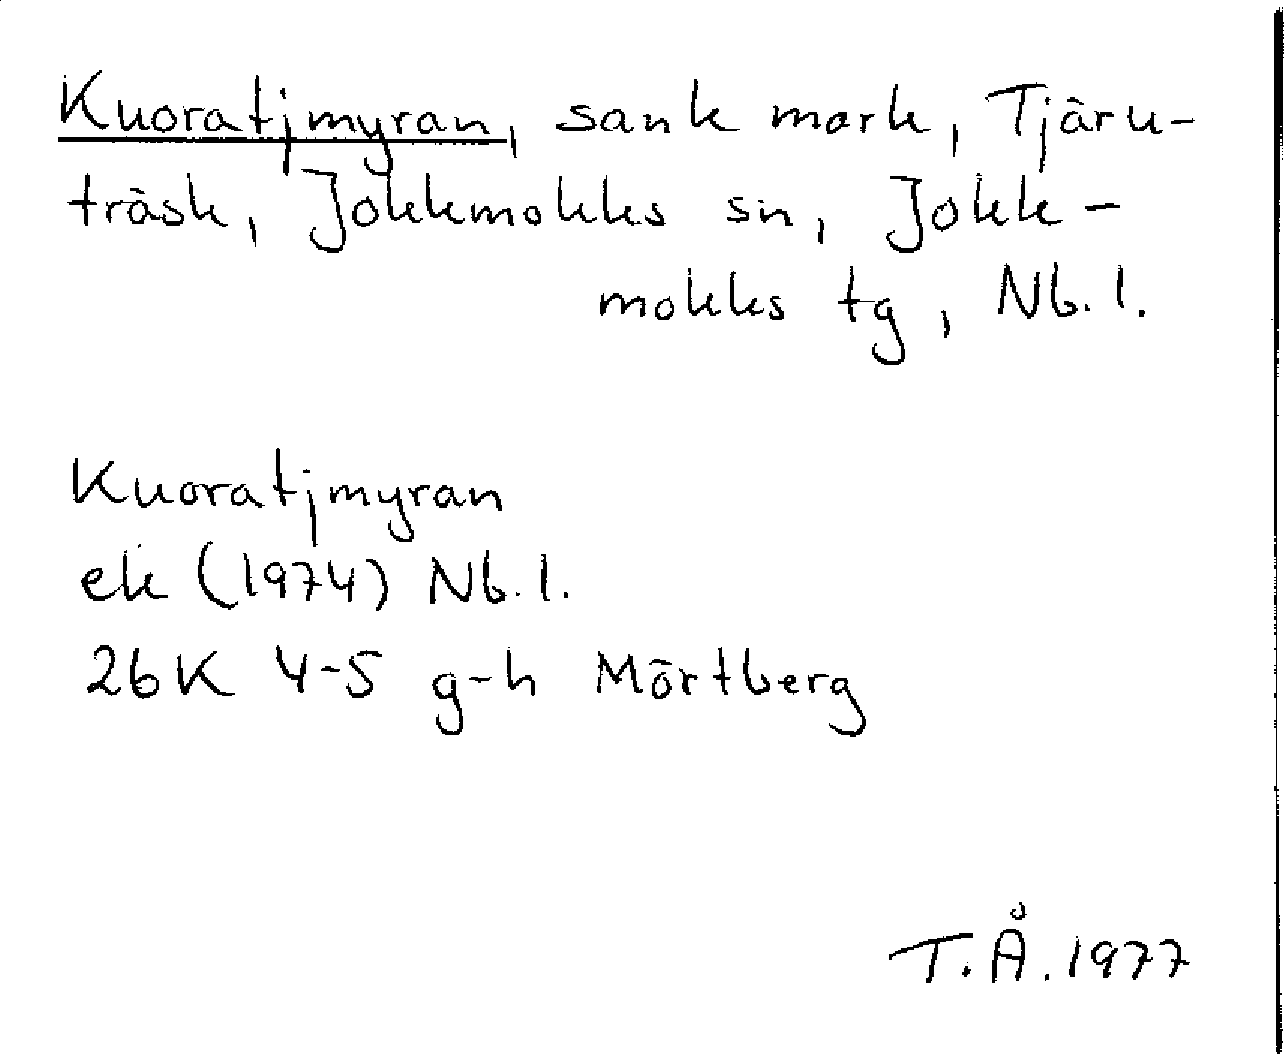 Kuoratjmyran, sank mark, Tjäru-
träsk, Jokkmokks sn, Jokk-
mokks tg, Nb. l.
Kuoratjmyran
ek (1974) Nb. l.
26K 4-5 g-h Mörtberg
T.Å. 1977